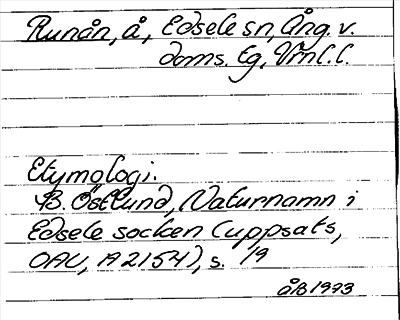 Runån, å, Edsele sn, Ång. v.
doms. Eg. Vrnl. l.
Etymologi.
B. Östlund, Naturnamn i
Edsele socken (uppsats,
OAU, A 2154), s. 19
ÅB 1973